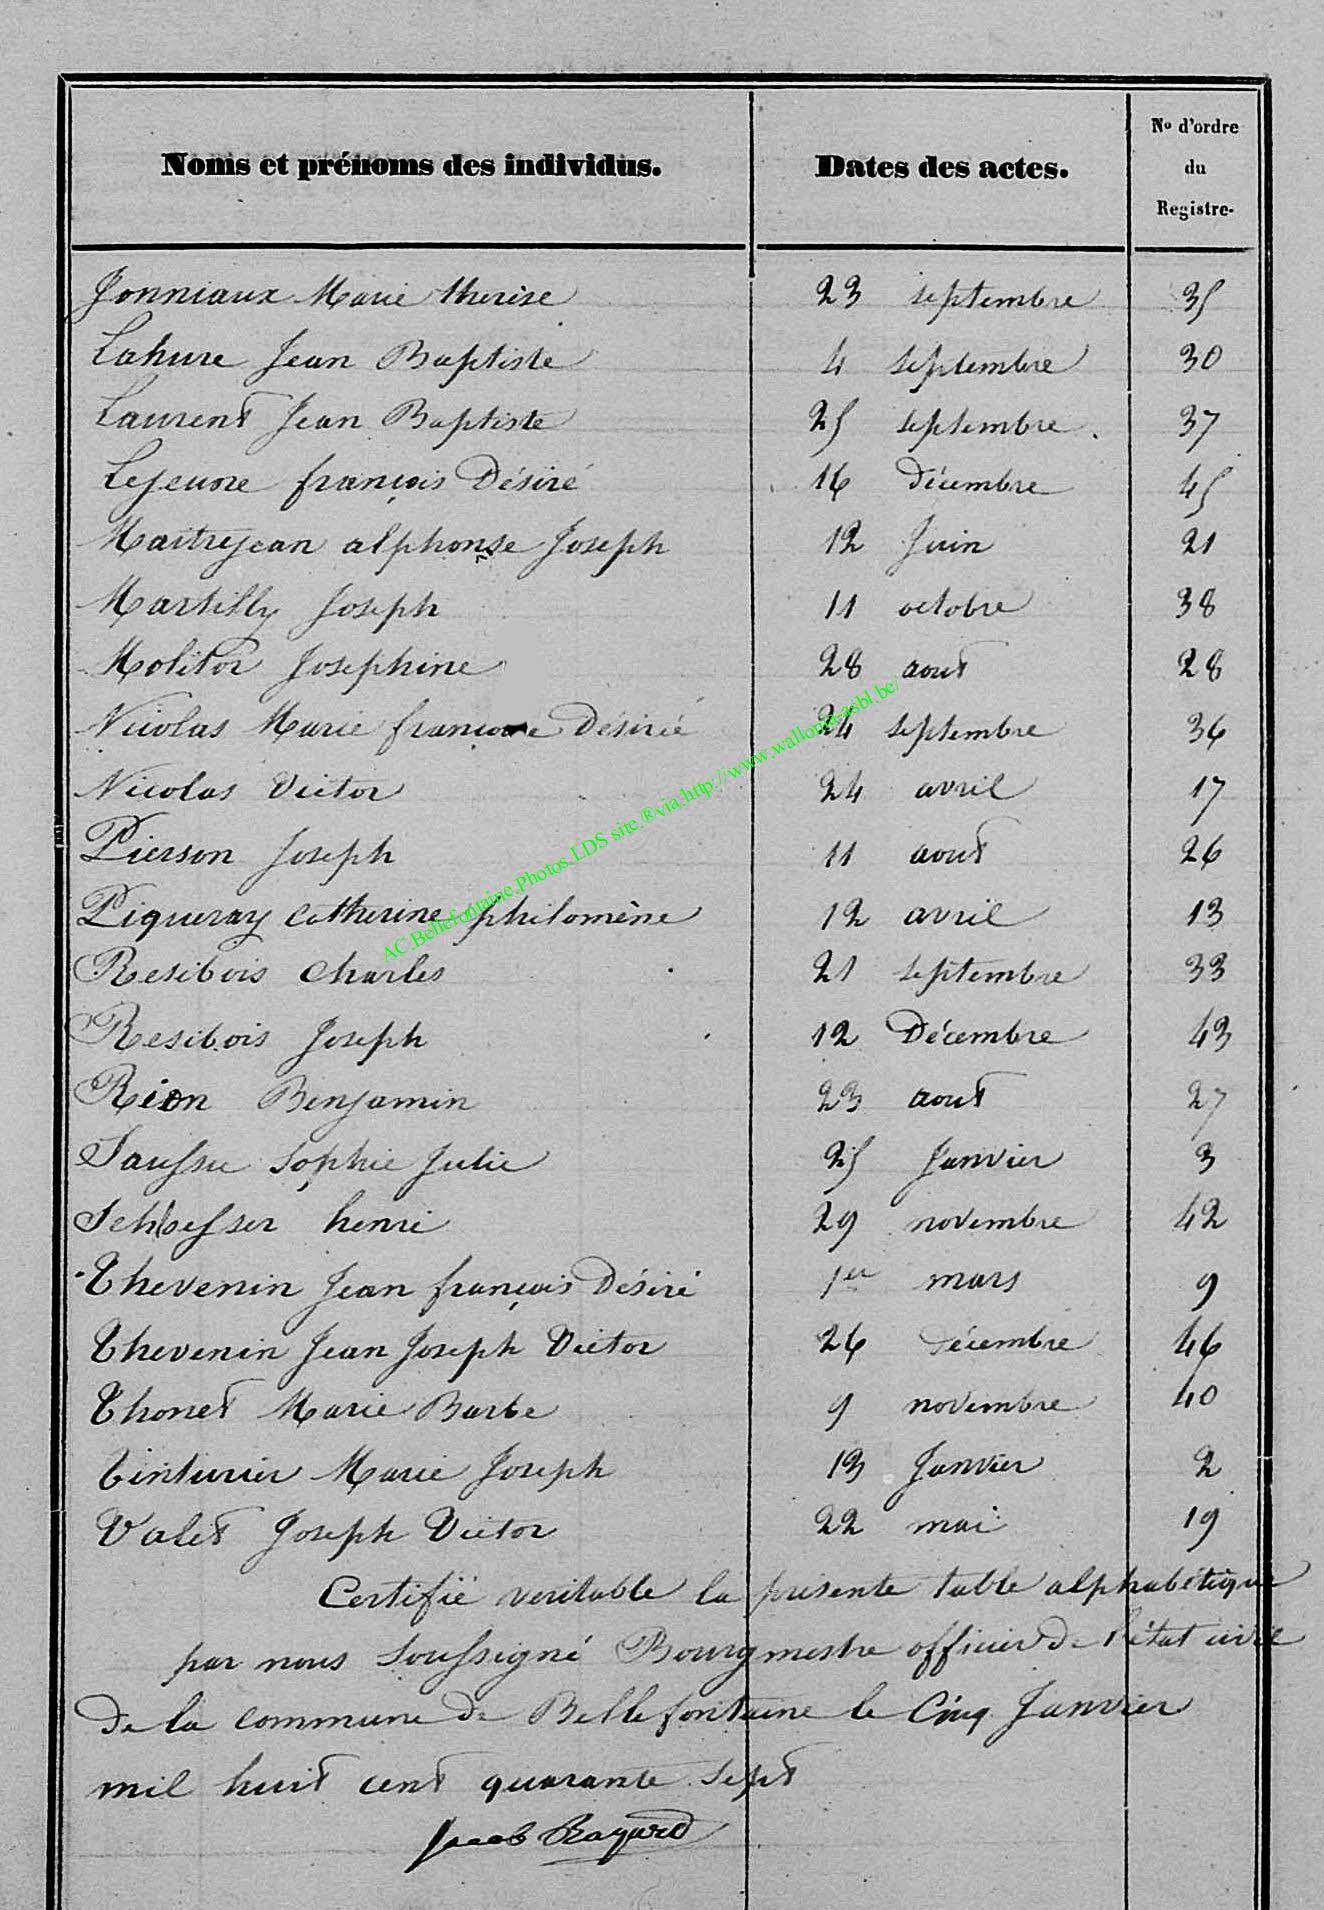 Noms et prénoms des individus. Dates des actes. No d'ordre du Registre-
Jonniaux Marie therèse 23 septembre 35
Lahure Jean Baptiste 4 septembre 30
Laurent Jean Baptiste 25 septembre 37
Lejeune françois Désiré 16 décembre 45
Maitrejean alphonse Joseph 12 Juin 21
Martilly Joseph 11 octobre 38
Molitor Josephine 28 aout 28
Nicolas Marie francoise Désirée 24 septembre 36
Nicolas Victor 24 avril 17
Pierson Joseph 11 aout 26
Piqueray Catherine philomène 12 avril 13
Resibois Charles 21 septembre 33
Resibois Joseph 12 Décembre 43
Rion Benjamin 23 aout 27
Saussu Sophie Julie 25 Janvier 3
Schloesser henri 29 novembre 42
Thevenin Jean françois Désiré 1er mars 9
Thevenin Jean Joseph Victor 26 décembre 46
Thonet Marie Barbe 9 novembre 40
Tinturier Marie Joseph 13 Janvier 2
Valet Joseph Victor 22 mai 19
Certifié veritable la présente table alphabétique
par nous soussigné Bourgmestre officier de l'état civil
de la commune de Bellefontaine le Cinq Janvier
mil huit cent quarante sept
Jacob
AC.Bellefontaine.Photos.LDS site.®via.http://www.wallonia-asbl.be/